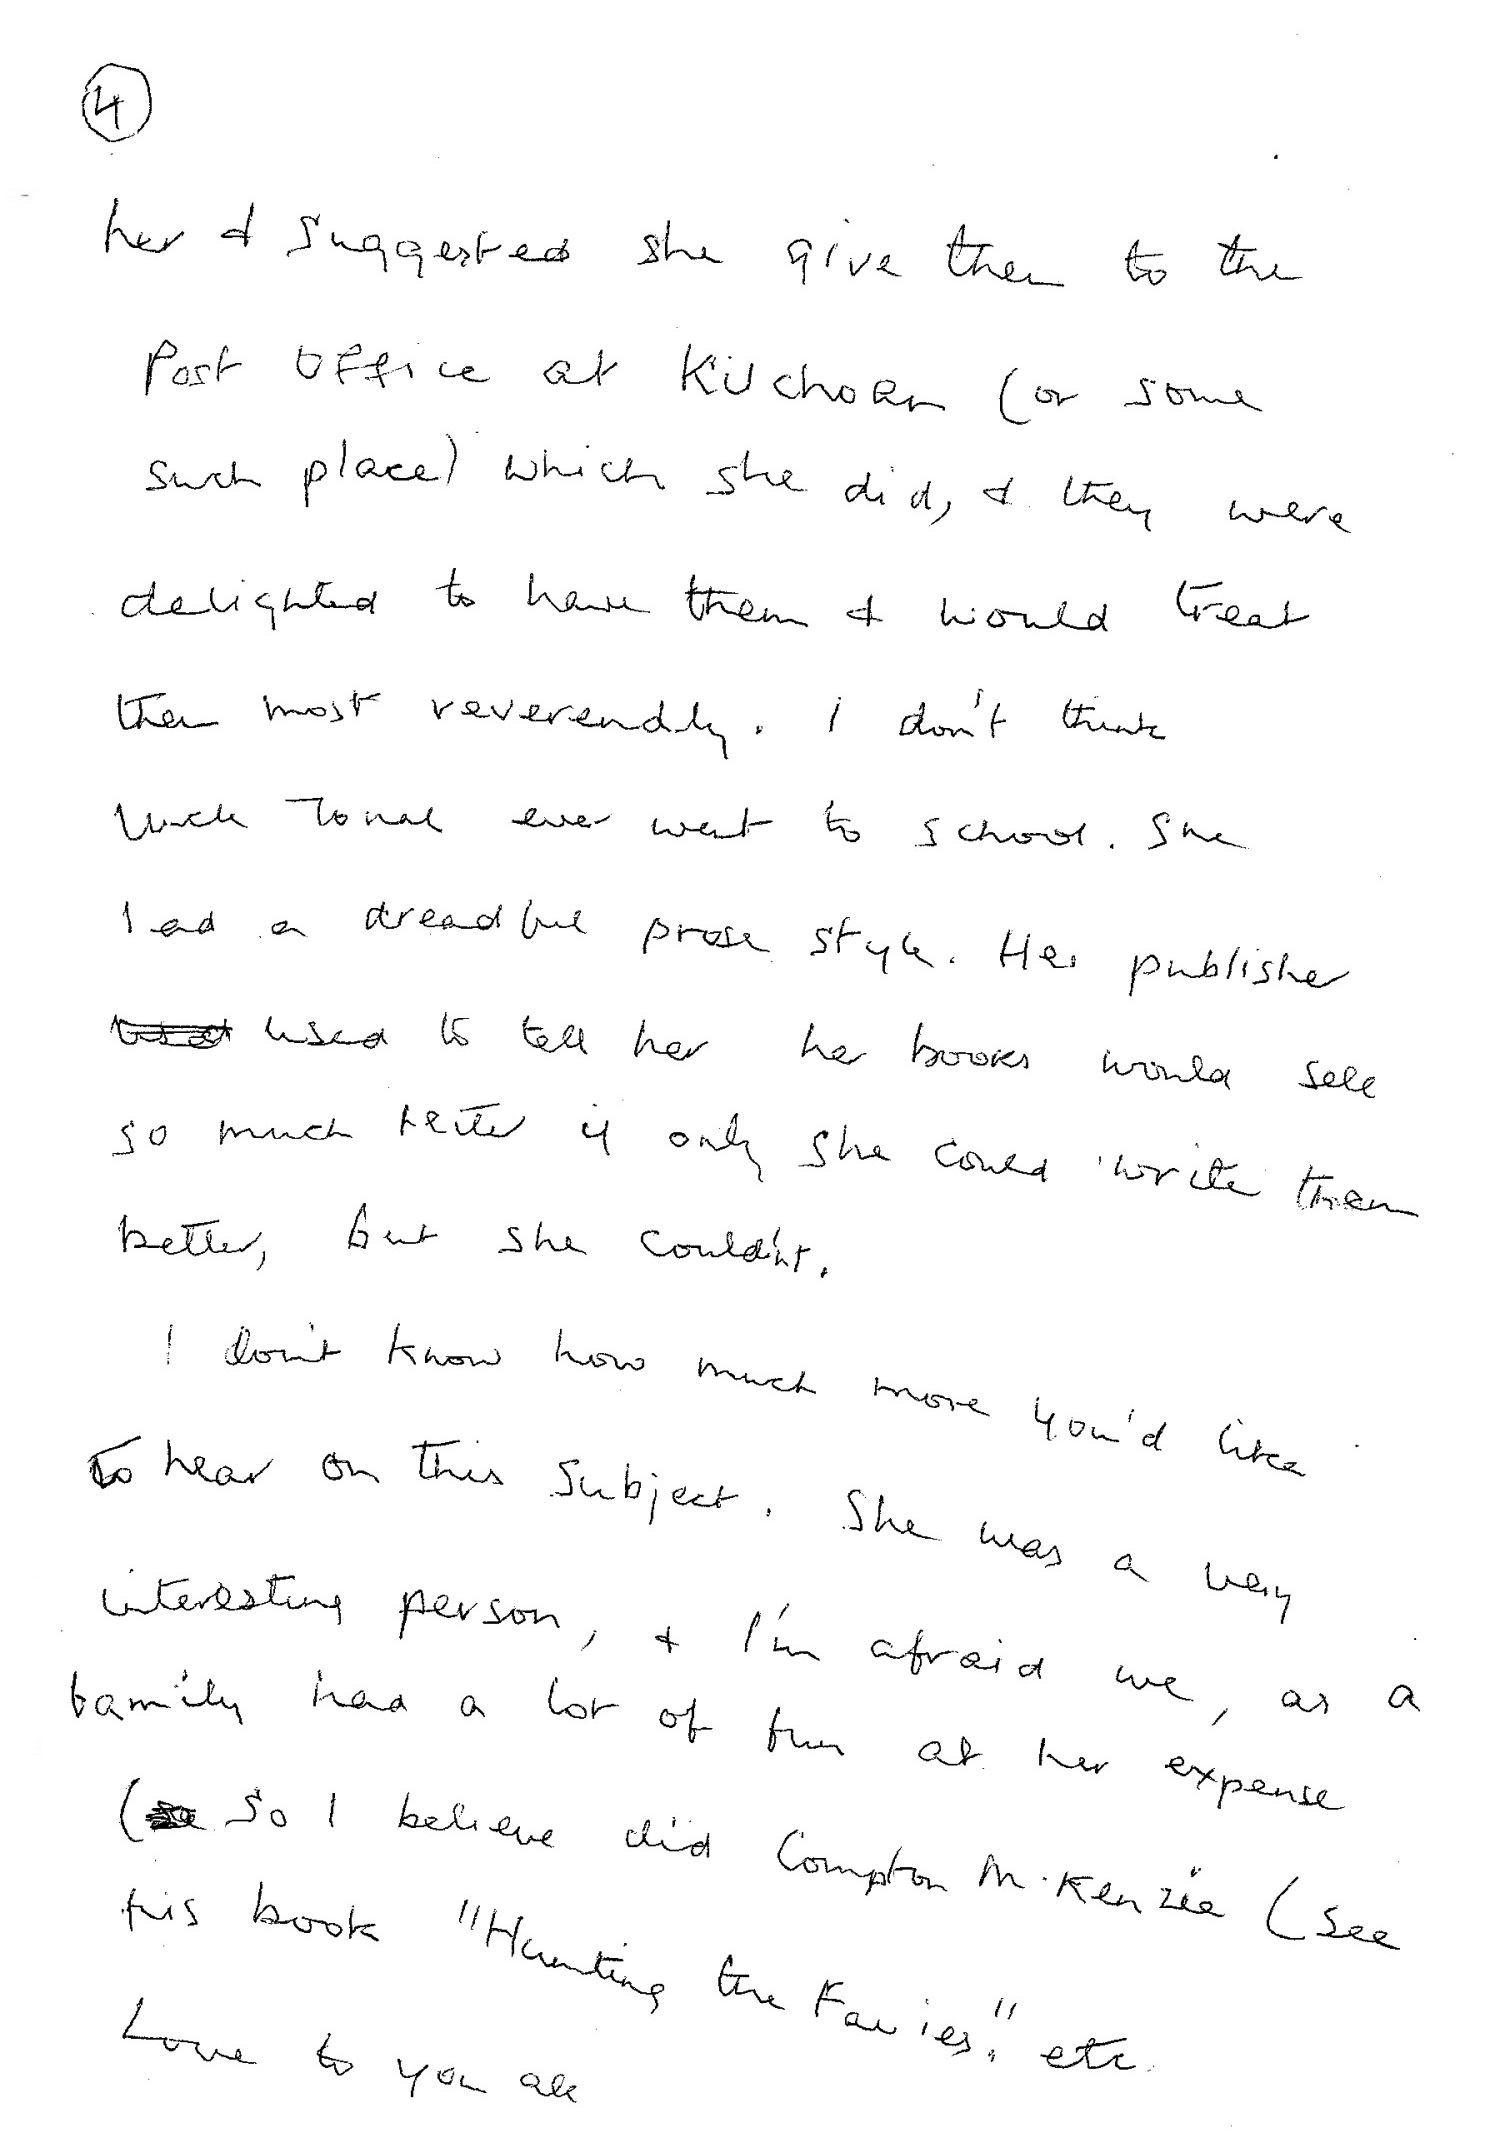 4
her & suggested she give them to the
Post Office at Kilchoan (or some
such place) which she did, & they were
delighted to have them & would treat
them most reverendly. I don't think
ever went to school. She
had a dreadful prose style. Her publisher
used to tell her her books would sell
so much better if only she could write them
better, but she couldn't.
I don't know how much more you'd like
to hear on this subject. She was a very
interesting person, & I'm afraid we, as a
family had a lot of fun at her expense
(so I believe did Compton McKenzie (see
his book "Hunting the Fairies." etc.
Love to you all